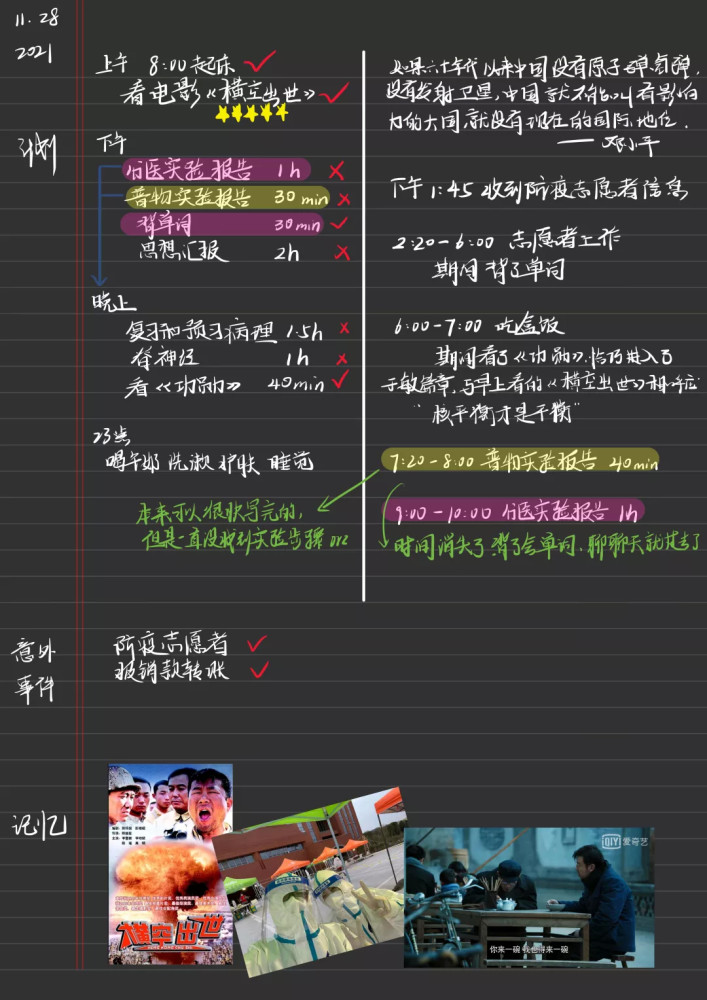 11.28
2021
计划
上午 8:00 起床 ✓
看电影《横空出世》 ✓
★★★★★
下午
法医实验报告 1h ×
普物实验报告 30min ×
背单词 30min ✓
思想汇报 2h ×
晚上
复习和预习病理 1.5h ×
脊神经 1h ×
看《功勋》 40min ✓
23点
喝牛奶 洗漱 护肤 睡觉
本来可以很快写完的,
但是一直没找到实验步骤 orz
如果六十年代以来中国没有原子弹氢弹,
没有发射卫星,中国就不能叫有影响
力的大国,就没有现在的国际地位.
——邓小平
下午 1:45 收到防疫志愿者信息
2:20-6:00 志愿者工作
期间背了单词
6:00-7:00 吃盒饭
期间看了《功勋》,恰巧进入了
于敏篇章,与早上看的《横空出世》相呼应
"核平衡才是平衡"
7:20-8:00 普物实验报告 40min
9:00-10:00 法医实验报告 1h
时间消失了 背了会单词,聊聊天就过去了
意外
事件
防疫志愿者 ✓
报销款转账 ✓
记忆
横空出世
iQIYI 爱奇艺
你来一碗 我也得来一碗